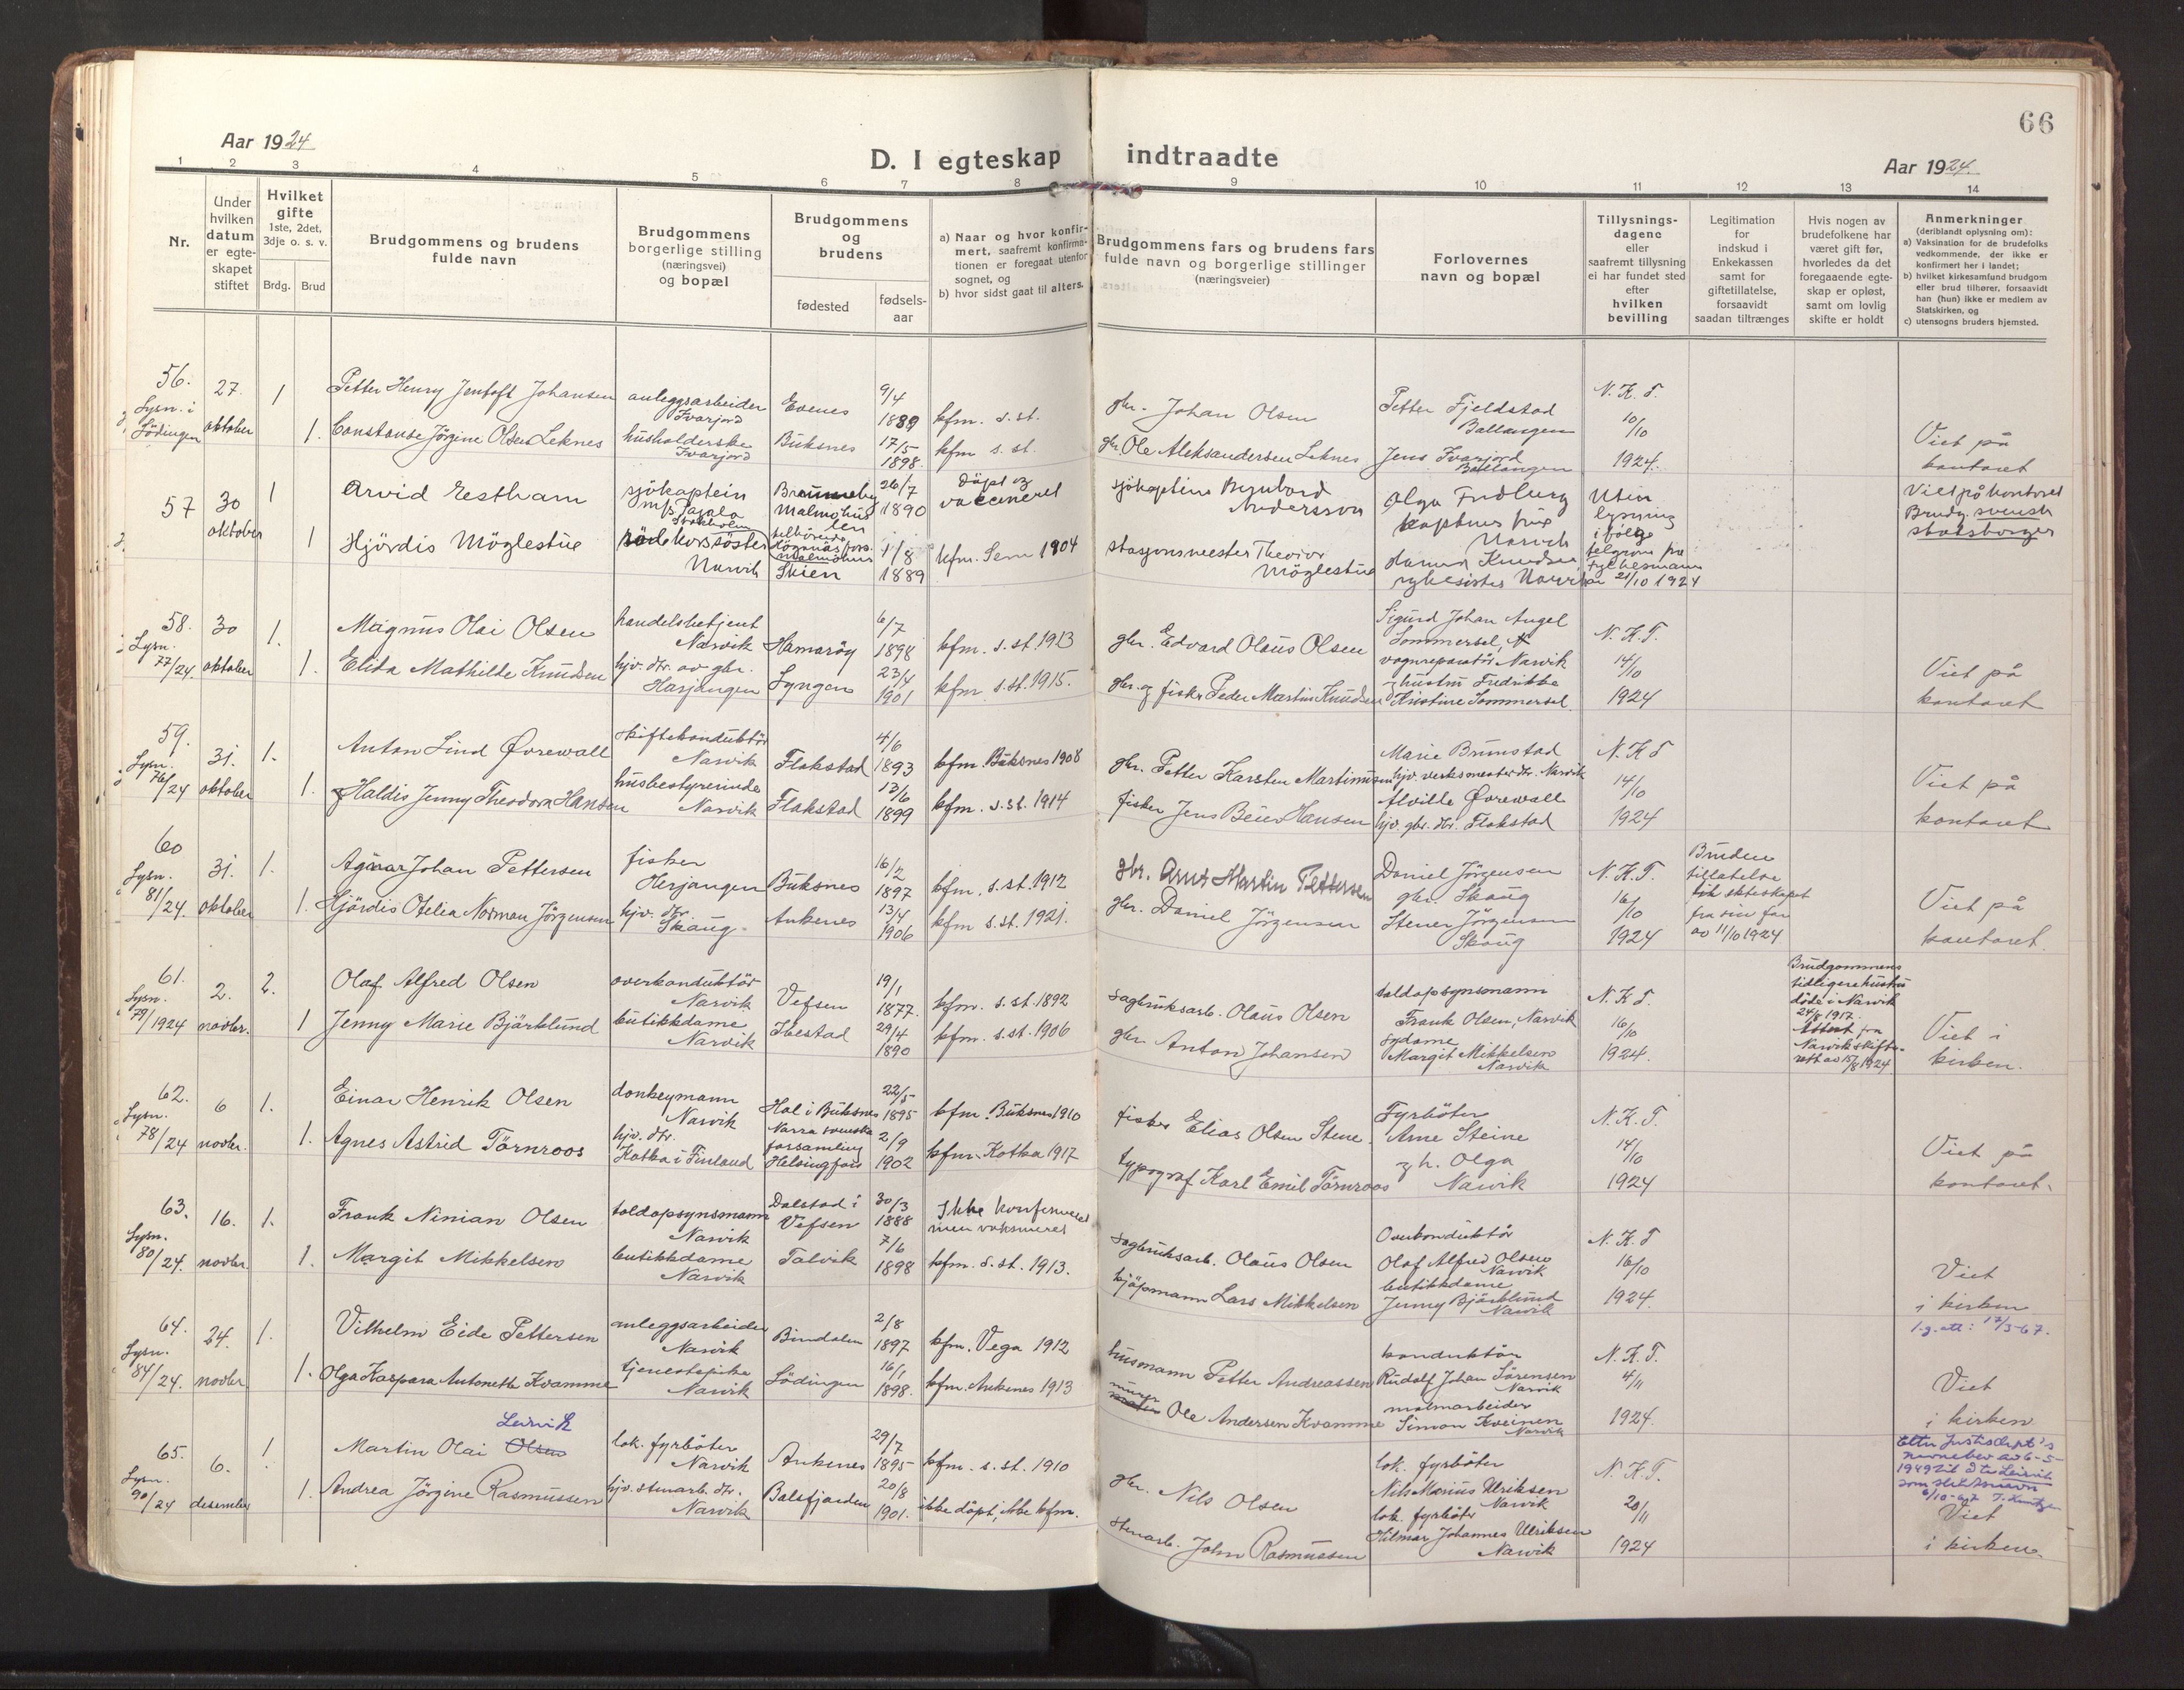 66
Aar 1924
D. I egteskap indtraadte
Aar 1924.
1 2 3 4 5 6 7 8 9 10 11 12 13 14
Nr.
Under
hvilken
datum
er egte-
skapet
stiftet
Hvilket
gifte
1ste, 2det,
3dje o. s. v.
Brdg. Brud
Brudgommens og brudens
fulde navn
Brudgommens
borgerlige stilling
(næringsvei)
og bopæl
Brudgommens
og
brudens
fødested
fødsels-
aar
a) Naar og hvor konfir-
mert, saafremt konfirma-
tionen er foregaat utenfor
sognet, og
b) hvor sidst gaat til alters.
Brudgommens fars og brudens fars
fulde navn og borgerlige stillinger
(næringsveier)
Forlovernes
navn og bopæl
Tillysnings-
dagene
eller
saafremt tillysning
ei har fundet sted
efter
hvilken
bevilling
Legitimation
for
indskud i
Enkekassen
samt for
giftetillatelse,
forsaavidt
saadan tiltrænges
Hvis nogen av
brudefolkene har
været gift før,
hvorledes da det
foregaaende egte-
skap er opløst,
samt om lovlig
skifte er holdt
Anmerkninger
(deriblandt oplysning om):
a) Vaksination for de brudefolks
vedkommende, der ikke er
konfirmert her i landet;
b) hvilket kirkesamfund brudgom
eller brud tilhører, forsaavidt
han (hun) ikke er medlem av
Statskirken, og
c) utensogns bruders hjemsted.
56.
Lysn. i
Lödingen
27.
oktober
1
1.
Petter Henry Jentoft Johansen
Constanse Jörgine Olsen Leknes
anleggsarbeider
Ivarjord
husholderske
Ivarjord
Evenes
Buksnes
9/4
1889
17/5
1898.
kfm. s. st.
kfm s. st.
gbr. Johan Olsen
gbr. Ole Aleksandersen Leknes
Petter Fjeldstad
Ballangen
Jens Ivarjord
Ballangen
N. K. T.
10/10
1924.
Viet på
kontoret
57
30
oktober
1
1
Arvid Estham
Hjördis Möglestue
sjökaptein
m/s Pajala
Stockholm
röde korssöster
Narvik
Brunnby
Malmöhus
len
tilhörende
Höganäs fors.
Malmöhus
Skien
26/7
1890
1/8
1889
Döpt og
vaccineret
kfm. Sem 1904
sjökaptein Bernhard
Andersson
stasjonsmester Theodor
Möglestue
Olga Fridberg
kapteins frue
Narvik
Hanna Knudsen
sykesöster Narvik
Uten
lysning
i följe
telgram fra
Fylkesmann
av 21/10 1924
Viet på kontoret
Brudg. svensk
statsborger
58.
Lysn.
77/24.
30
oktober
1.
1.
Magnus Olai Olsen
Elida Mathilde Knudsen
handelsbetjent
Narvik
hjv. dtr. av gbr.
Harjangen
Hamaröy
Lyngen
6/7
1898
23/4
1901
kfm. s. st. 1913
kfm s. st. 1915.
gbr. Edvard Olaus Olsen
gbr. og fisker Peder Martin Knudsen
Sigurd Johan Angel
Sommersel,
vognreparatör Narvik
og hustru Fredrikke
Kristine Sommersel.
N. K. T.
14/10
1924
Viet på
kontoret
59.
Lysn.
76/24
31.
oktober
1.
1.
Anton Lind Øvrewall
Haldis Jenny Theodora Hansen
skiftekonduktör
Narvik
husbestyrerinde
Narvik
Flakstad
Flakstad
4/6
1893
13/6
1899
kfm. Buksnes 1908
kfm. s. st. 1914
gbr. Petter Karsten Martinussen
fisker Jens Beier Hansen
Marie Brunstad
hjv. verksmester dtr. Narvik
Alvilde Øvrewall
hjv. gbr. dtr. Flakstad
N. K. T
14/10
1924
Viet på
kontoret
60
Lysn.
81/24.
31.
oktober
1.
1.
Agnar Johan Pettersen
Hjördis Ofelia Norman Jörgensen
fisker
Herjangen
hjv. dtr.
Skaug
Buksnes
Ankenes
16/2
1897
13/4
1906
kfm. s. st. 1912
kfm s. st. 1921.
gbr. Arnt Martin Pettersen
gbr. Daniel Jörgensen
Daniel Jörgensen
gbr. Skaug
Stener Jörgensen
Skaug
N. K. T.
16/10
1924
Bruden
tillatelse
til ekteskapet
fra sin far
av 11/10 1924
Viet på
kontoret.
61.
Lysn.
79/1924
2.
novbr.
2.
1
Olaf Alfred Olsen
Jenny Marie Bjärklund
overkonduktör
Narvik
butikkdame
Narvik
Vefsen
Ibestad
19/1
1877.
29/4
1890
kfm. s. st. 1892
kfm. s. st. 1906
sagbruksarb. Olaus Olsen
gbr. Anton Johansen
toldopsynsmann
Frank Olsen, Narvik
sydame
Margit Mikkelsen
Narvik
N. K. T.
16/10
1924.
Brudgommens
tidligere hustru
döde i Narvik
24/8 1917.
Attest fra
Narvik skifte-
rett av 15/8 1924
Viet i
kirken.
62.
Lysn.
78/24
6
novbr.
1.
1.
Einar Henrik Olsen
Agnes Astrid Törnroos
donkeymann
Narvik
hjv. dtr.
Kotka i Finland
Hol i Buksnes
Narra svenska
forsamling
Helsingfors
22/5
1895
2/9
1902
kfm. Buksnes 1910
kfm. Kotka 1917
fisker Elias Olsen Stene.
typograf Karl Emil Törnroos
Fyrböter
Arne Steine
og h. Olga
Narvik
N. K. T.
14/10
1924
Viet på
kontoret.
63.
Lysn.
80/24.
16.
novbr.
1.
1.
Frank Ninian Olsen
Margit Mikkelsen
toldopsynsmann
Narvik
butikkdame
Narvik
Dalstad i
Vefsen
Talvik
30/3
1888
7/6
1898
Ikke konfirmeret
men vaksineret
kfm. s. st. 1913.
sagbruksarb. Olaus Olsen
kjöpmann Lars Mikkelsen
Overkonduktör
Olaf Alfred Olsen
Narvik
butikkdame
Jenny Bjärklund
Narvik
N. K. T
16/10
1924.
Viet
i kirken
l. g. att: 17/3-67.
64.
Lysn.
84/24.
24.
novbr
1.
1.
Vilhelm Eide Pettersen
Olga Kaspara Antonette Kvamme
anleggsarbeider
Narvik
tjenestepike
Narvik
Bindalen
Lödingen
2/8
1897
16/1
1898.
kfm. Vega 1912
kfm. Ankenes 1913
husmann Petter Andreassen
murer
Ole Andersen Kvamme
konduktör
Rudolf Johan Sörensen
Narvik
malmarbeider
Simon Kveinen
Narvik
N. K. T.
4/11
1924.
Viet
i kirken
65.
Lysn.
90/24
6.
desember
1.
1.
Leirvik
Martin Olai Olsen
Andrea Jörgine Rasmussen
lok. fyrböter
Narvik
hjv. stenarb. dtr.
Narvik
Ankenes
Balsfjorden
29/7
1895
20/8
1901.
kfm. s. st. 1910
ikke döpt, ikke kfm.
gbr. Nils Olsen
stenarb. John Rasmussen
lok. fyrböter
Nils Marius Ulriksen
Narvik
lok. fyrböter
Hilmar Johannes Ulriksen
Narvik
N. K. T.
20/11
1924
Etter Justisdept's
navnebev av 6-5-
1949
som slektsnavn
Viet
i kirken.